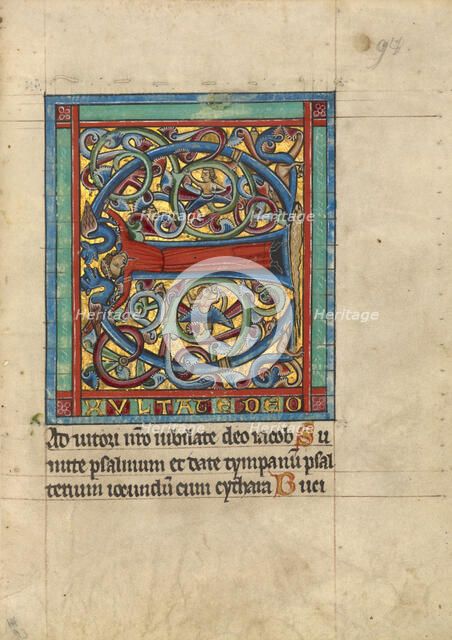 94
XVLTATE DEO
Ad iutori nro iubilate deo iacob Su
mite psalmum et date tympanū psal
terium iocundū cum cythara Buci